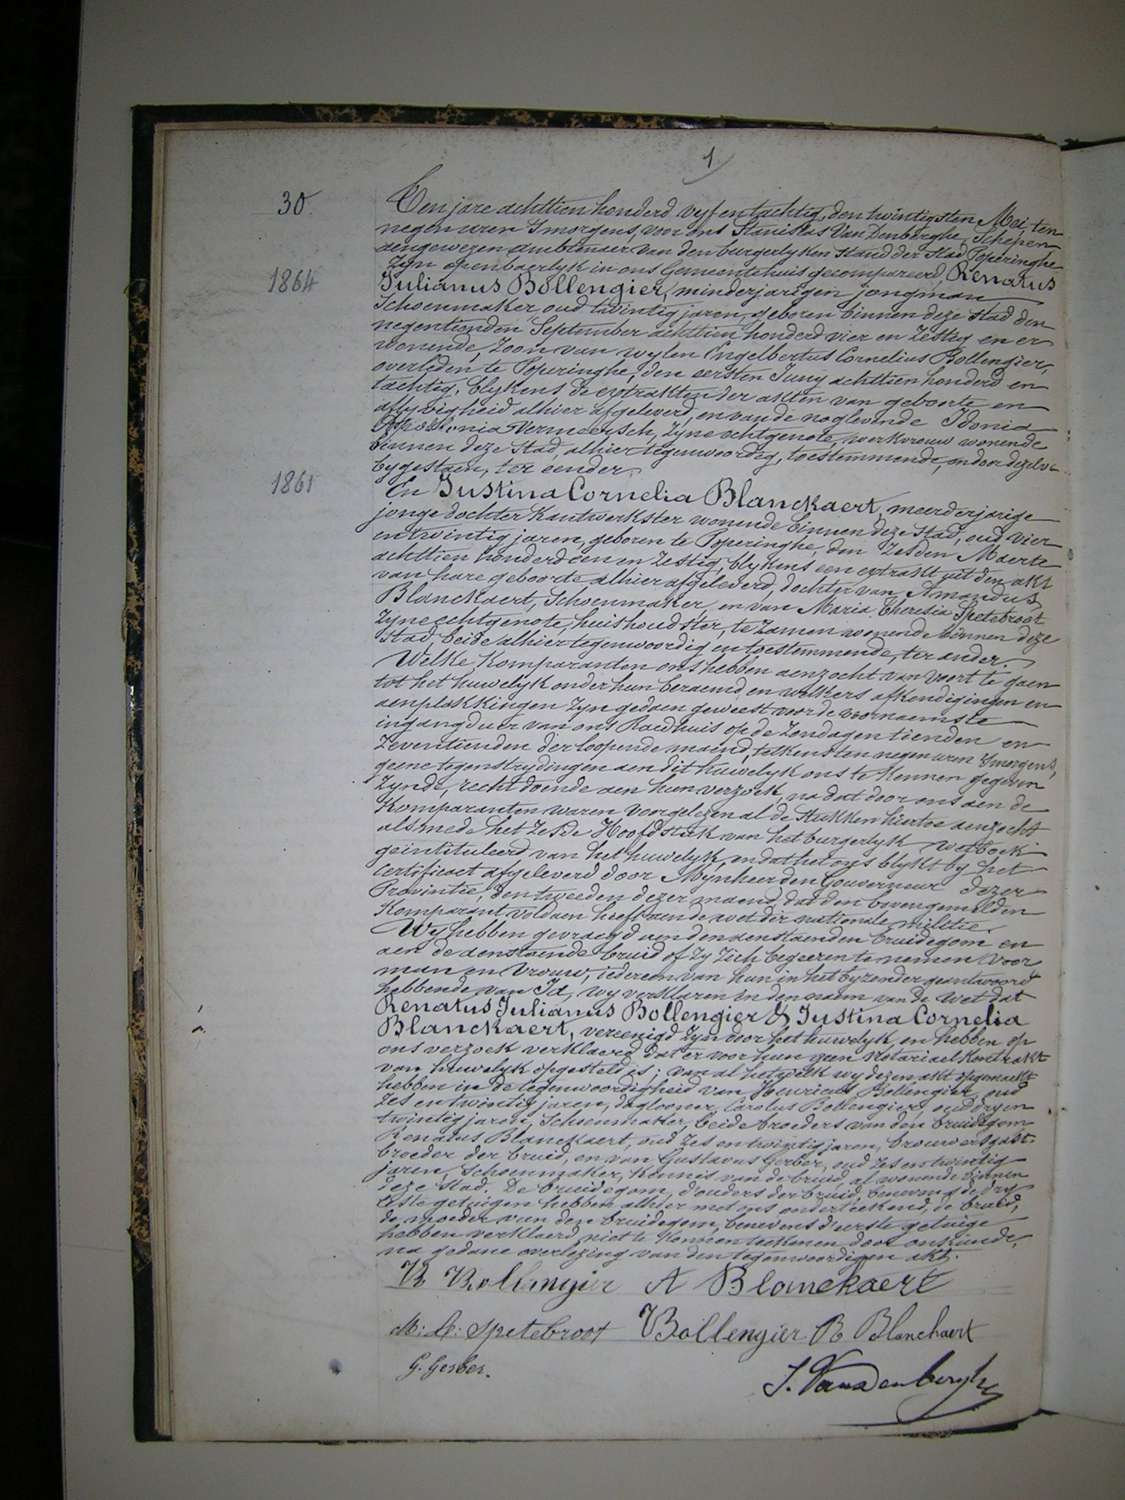 1
30.
Ten jare achttien honderd vyf en tachtig, den twintigsten Mei ten
negen uren 's morgens voor ons Stanislas Van Denberghe, Schepen
aengewezen ambtenaer van den burgerlyken stand der Stad Poperinghe
Zyn openbaerlyk in ons Gemeentehuis gecompareerd, Renatus
1864
Julianus Bollengier, minderjarigen jongman
Schoenmaker, oud twintig jaren, geboren binnen deze stad den
negentienden September achttien honderd vier en zestig en er
wonende, zoon van wylen Engelbertus Cornelius Bollengier,
overleden te Poperinghe, den eersten Juny achttien honderd en
tachtig, blykens de extrakten der akten van geboorte en
aflyvigheid alhier afgeleverd, en van de naglevende Idonia
Appolonia Vermeersch, zyne echtgenote, werkvrouw wonende
binnen deze Stad, alhier tegenwoordig, toestemmende, en door dezelve
bygestaen, ter eender
1861
En Justina Cornelia Blanckaert, meerderjarige
jonge dochter Kantwerkster wonende binnen deze Stad, oud vier
en twintig jaren, geboren te Poperinghe, den zesden Maerte
achttien honderd een en zestig, blykens een extrakt uit den akt
van hare geboorte alhier afgeleverd, dochter van Amandus
Blanckaert, Schoenmaker, en van Maria Theresia Spetebroot
zyne echtgenote, huishoudster, te zamen wonende binnen deze
Stad beide alhier tegenwoordig en toestemmende, ter ander.
Welke Komparanten ons hebben aenzocht van voort te gaen
tot het huwelyk onder hun beraemd en welkers afkondigingen en
aenplakkingen zyn gedaen geweest voor de voornaemste
ingangdeur van ons Raedhuis op de Zondagen tienden en
zeventienden der loopende maend, telkens ten negen uren 's morgens,
geene tegenstrydingen aen dit huwelyk ons te kennen gegeven
zynde, recht doende aen hun verzoek, na dat door ons aen de
Komparanten waren voorgelezen al de stukken hiertoe aenzocht
alsmede het zesde Hoofdstuk van het burgerlyk wetboek
geintituleerd van het huwelyk, en dat het ons blykt by het
certificaet afgeleverd door Mynheer den Gouverneur dezer
Provintie, den tweeden dezer maend, dat den bovengemelden
Komparant voldaen heeft aen de wet der nationale militie.
Wy hebben gevraegd aen den aenstaenden bruidegom en
aen de aenstaende bruid of zy zich begeeren te nemen voor
man en vrouw, iedereen van hun in het byzonder geantwoord
hebbende van Ja, wy verklaren in den naem van de Wet dat
Renatus Julianus Bollengier & Justina Cornelia
Blanckaert, vereenigd zyn door het huwelyk, en hebben op
ons verzoek verklaerd dat er voor hun geen Notariael kontrakt
van huwelyk opgesteld is; van al hetwelk wy dezen akt opgemaekt
hebben in de tegenwoordigheid van Henricus Bollengier, oud
zes en twintig jaren, daglooner, Carolus Bollengier, oud dry en
twintig jaren, Schoenmaker, beide broeders van den bruidegom
Renatus Blanckaert, oud zes en twintig jaren, brouwersgast
broeder der bruid, en van Gustavus Gerber, oud zes en twintig
jaren, Schoenmaker, kennis van de bruid, al wonende binnen
deze Stad. De bruidegom, d'ouders der bruid, benevens de dry
leste getuigen hebben alhier met ons onderteekend, de bruid,
de moeder van den bruidegom, benevens d'eerste getuige
hebben verklaerd niet te kunnen teekenen door onkunde,
na gedane overlezing van den tegenwoordigen akt.
R Bollengier A Blanckaert
M: T: Spetebroot Bollengier R Blanchaert
G. Gerber.
S. Vandenberghe